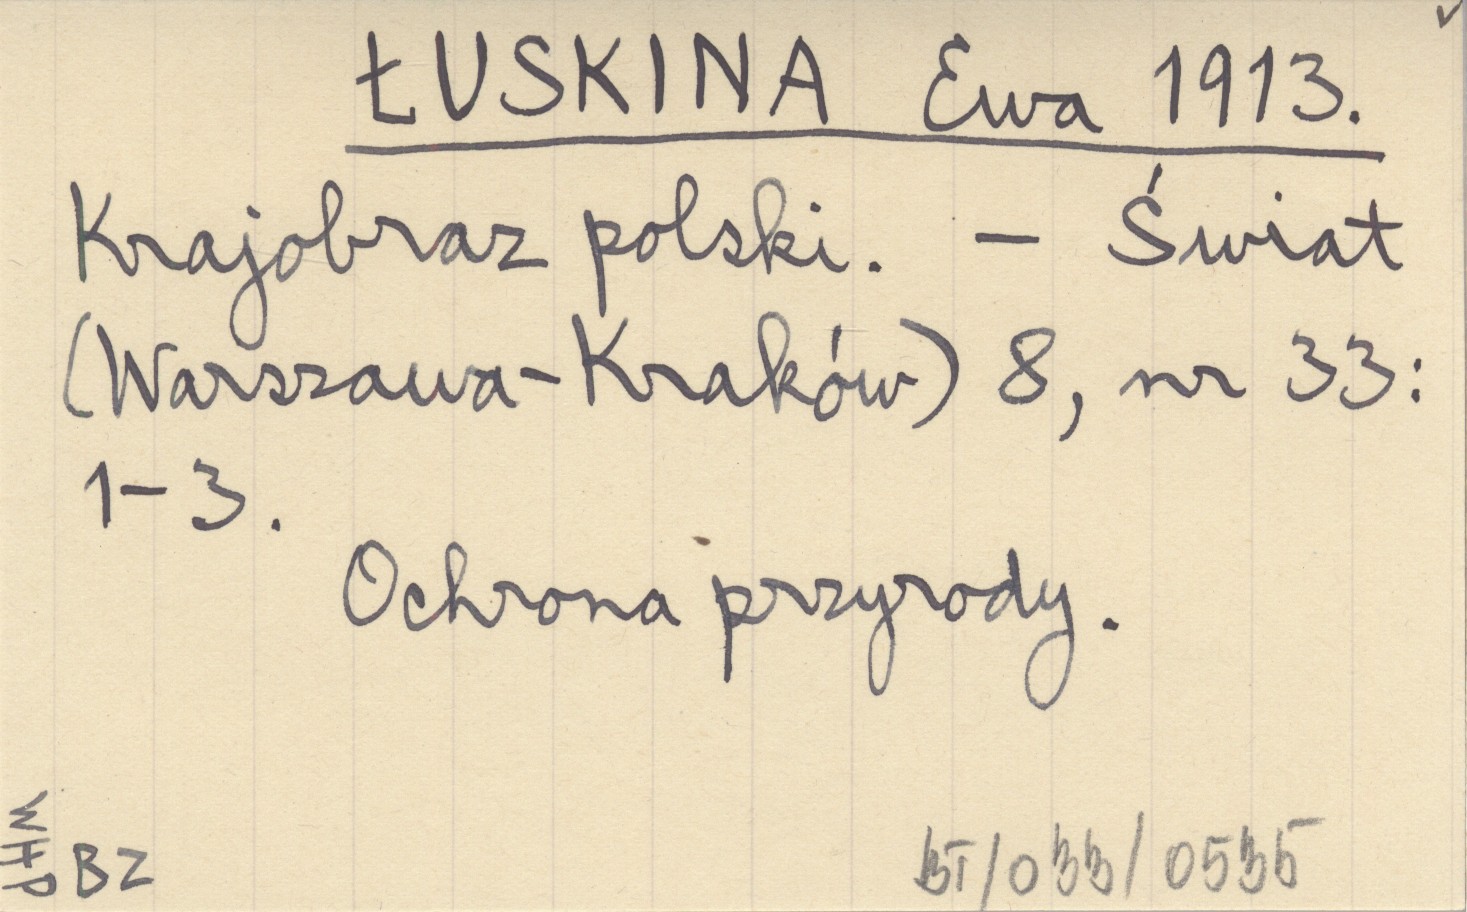 ŁUSKINA Ewa 1913.
Krajobraz polski. – Świat
(Warszawa-Kraków) 8, nr 33:
1-3.
Ochrona przyrody.
WHP
BZ
BI/033/0535